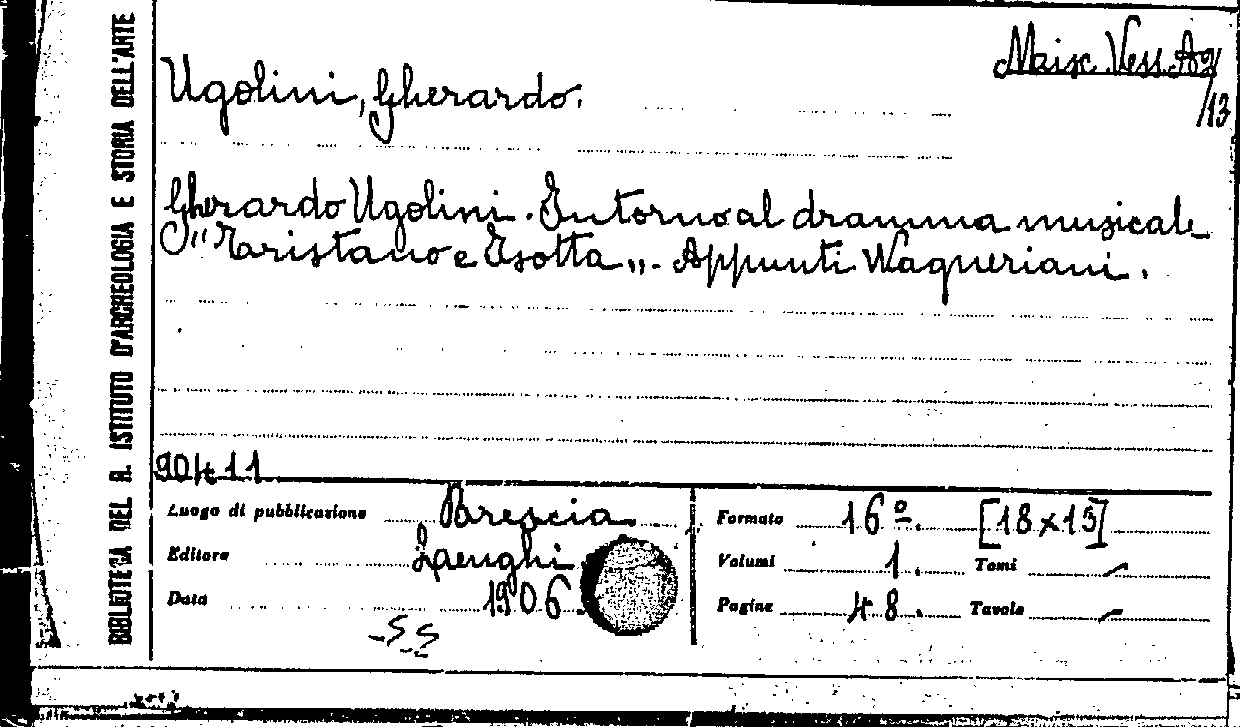 BIBLIOTECA DEL R. ISTITUTO D'ARCHEOLOGIA E STORIA DELL'ARTE
Misc. Vess. A2
/13
Ugolini, Gherardo.
Gherardo Ugolini. Intorno al dramma musicale
"Taristano e Isotta„. Appunti Wagneriani.
90411
Luogo di pubblicazione Brescia
Editore Lenghi
Data 1906.
Formato 16º. [18x15]
Volumi 1. Tomi –
Pagine 48. Tavole –